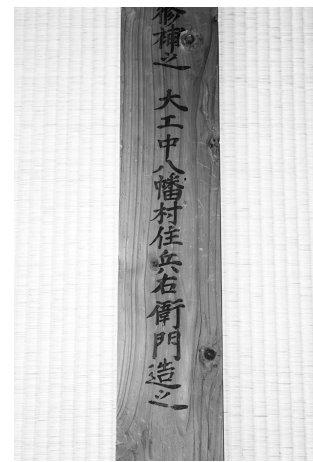 修補之 大工中八幡村住兵右衛門造之